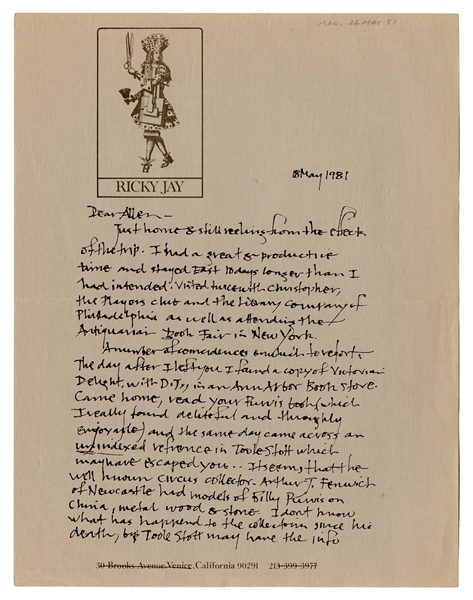 rec. 26 MAY 81
RICKY JAY
18 May 1981
Dear Allen –
Just home & still reeling from the effects
of the trip. I had a great & productive
time and stayed East 10 days longer than I
had intended. Visited twice with Christopher,
the Players club and the Library Company of
Philadelphia as well as attending the
Antiquarian Book Fair in New York.
A number of coincidences on which to report.
The day after I left you I found a copy of Victorian
Delight, with D.J., in an Ann Arbor Book store.
Came home, read your Purvis book (which
I really found deliteful and throughly
enjoyable) and the same day came across an
unindexed refrence in Toole Stott which
may have escaped you.. It seems that the
well known circus collector Arthur T. Fenwick
of Newcastle had models of Billy Purvis on
China, metal wood & stone. I dont know
what has happend to the collection since his
death, but Toole Stott may have the info
30 Brooks Avenue, Venice, California 90291 213-399-3977